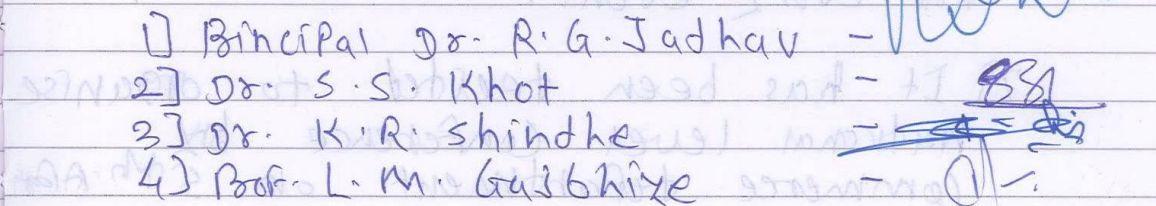 1] Principal Dr. R. G. Jadhav -
2] Dr. S. S. Khot -
3] Dr. K. R. Shindhe -
4] Prof. L. M. Gajbhiye -